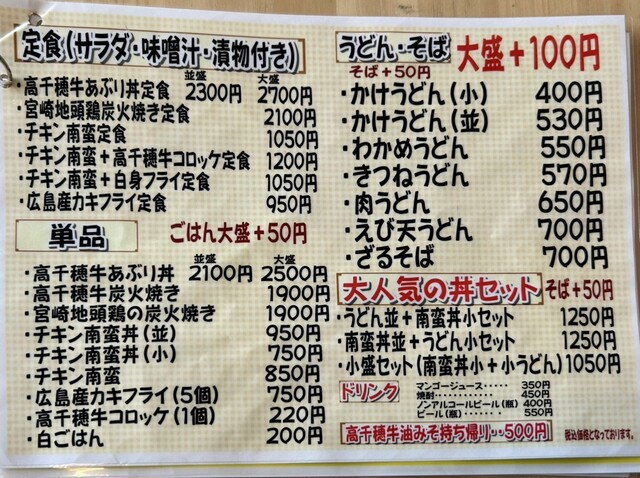 定食(サラダ・味噌汁・漬物付き)
並盛 大盛
・高千穂牛あぶり丼定食 2300円 2700円
・宮崎地頭鶏炭火焼き定食 2100円
・チキン南蛮定食 1050円
・チキン南蛮+高千穂牛コロッケ定食 1200円
・チキン南蛮+白身フライ定食 1050円
・広島産カキフライ定食 950円
単品 ごはん大盛+50円
並盛 大盛
・高千穂牛あぶり丼 2100円 2500円
・高千穂牛炭火焼き 1900円
・宮崎地頭鶏の炭火焼き 1900円
・チキン南蛮丼(並) 950円
・チキン南蛮丼(小) 750円
・チキン南蛮 850円
・広島産カキフライ(5個) 750円
・高千穂牛コロッケ(1個) 220円
・白ごはん 200円
うどん・そば 大盛+100円
そば+50円
・かけうどん(小) 400円
・かけうどん(並) 530円
・わかめうどん 550円
・きつねうどん 570円
・肉うどん 650円
・えび天うどん 700円
・ざるそば 700円
大人気の丼セット そば+50円
・うどん並+南蛮丼小セット 1250円
・南蛮丼並+うどん小セット 1250円
・小盛セット(南蛮丼小+小うどん) 1050円
ドリンク
マンゴージュース・・・・・ 350円
焼酎・・・・・・・・・・・ 450円
ノンアルコールビール(瓶) 400円
ビール(瓶)・・・・・・・ 550円
高千穂牛油みそ持ち帰り・・500円
税込価格となっております。